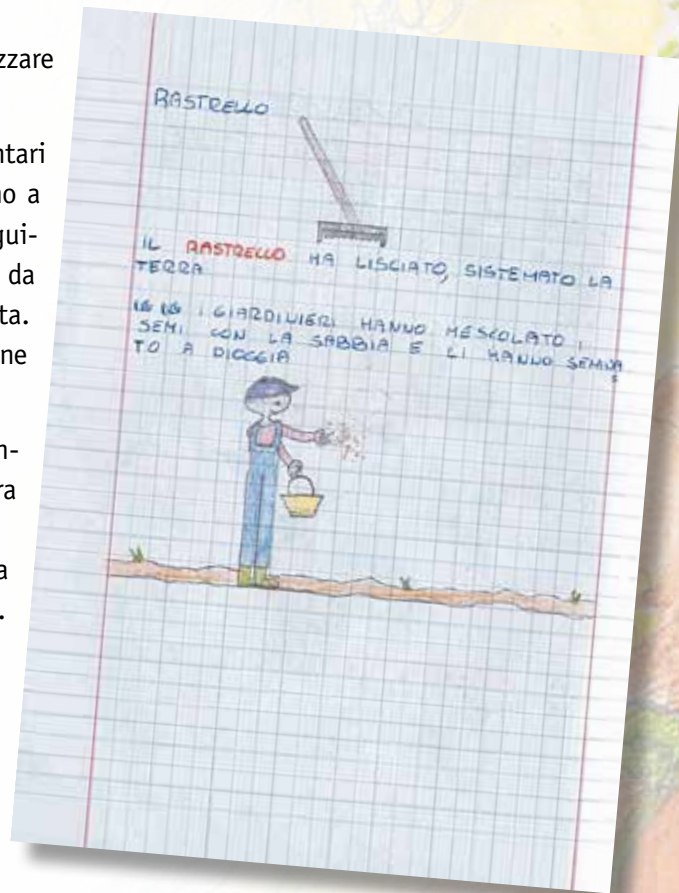 zzare
ntari
no a
gui-
da
ta.
ne
n-
ra
a
.
RASTRELLO
IL RASTRELLO HA LISCIATO, SISTEMATO LA
TERRA
I GIARDINIERI HANNO MESCOLATO I
SEMI CON LA SABBIA E LI HANNO SEMINA
TO A PIOGGIA